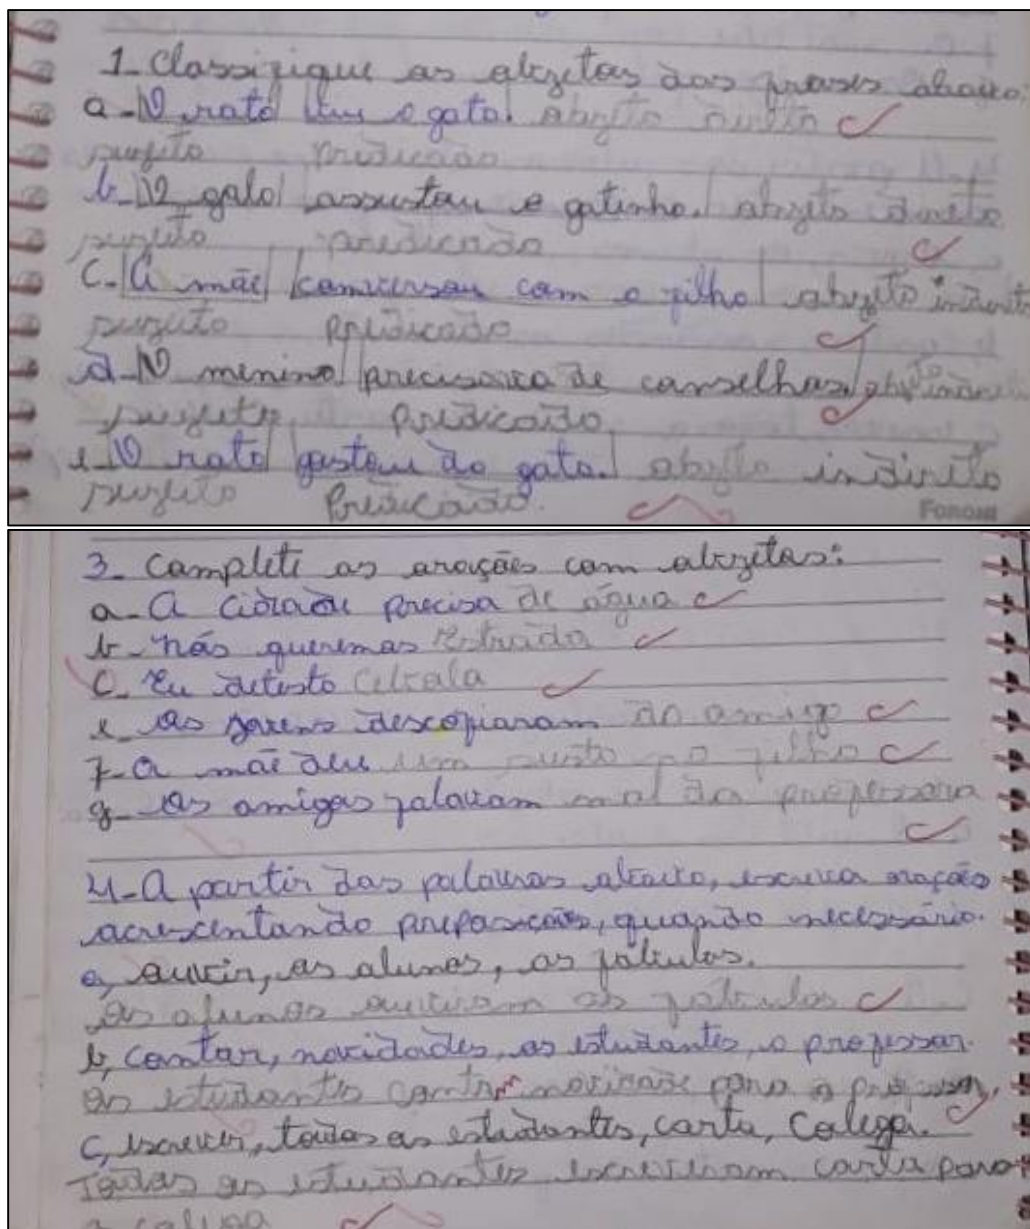 1- Classifique os objetos das frases abaixo.
a- O rato viu o gato. objeto direto
sujeito predicado
b- O galo assustou o gatinho. objeto direto
sujeito predicado
C- A mãe conversou com o filho objeto indireto
sujeito predicado
d- O menino precisava de conselhos obj indireto
sujeito predicado
e- O rato gostou do gato. objeto indireto
sujeito predicado.
Foroni
3- Complete as orações com objetos:
a- A cidade precisa de água
b- Nós queremos estrada
C- Eu detesto
e- Os jovens descofiaram do amigo
f- A mãe deu um ao filho
g- Os amigos falavam mal da professora
4- A partir das palavras abaixo, escreva orações
acrescentando preposições, quando necessário.
a, ouvir, os alunos, as fábulas.
Os alunos ouviram as fábulas
b, contar, novidades, os estudantes, o professor.
Os estudantes novidade para o professor,
C, escrever, todos os estudantes, carta, Colega.
Todos os estudantes escreveram carta para
o colega